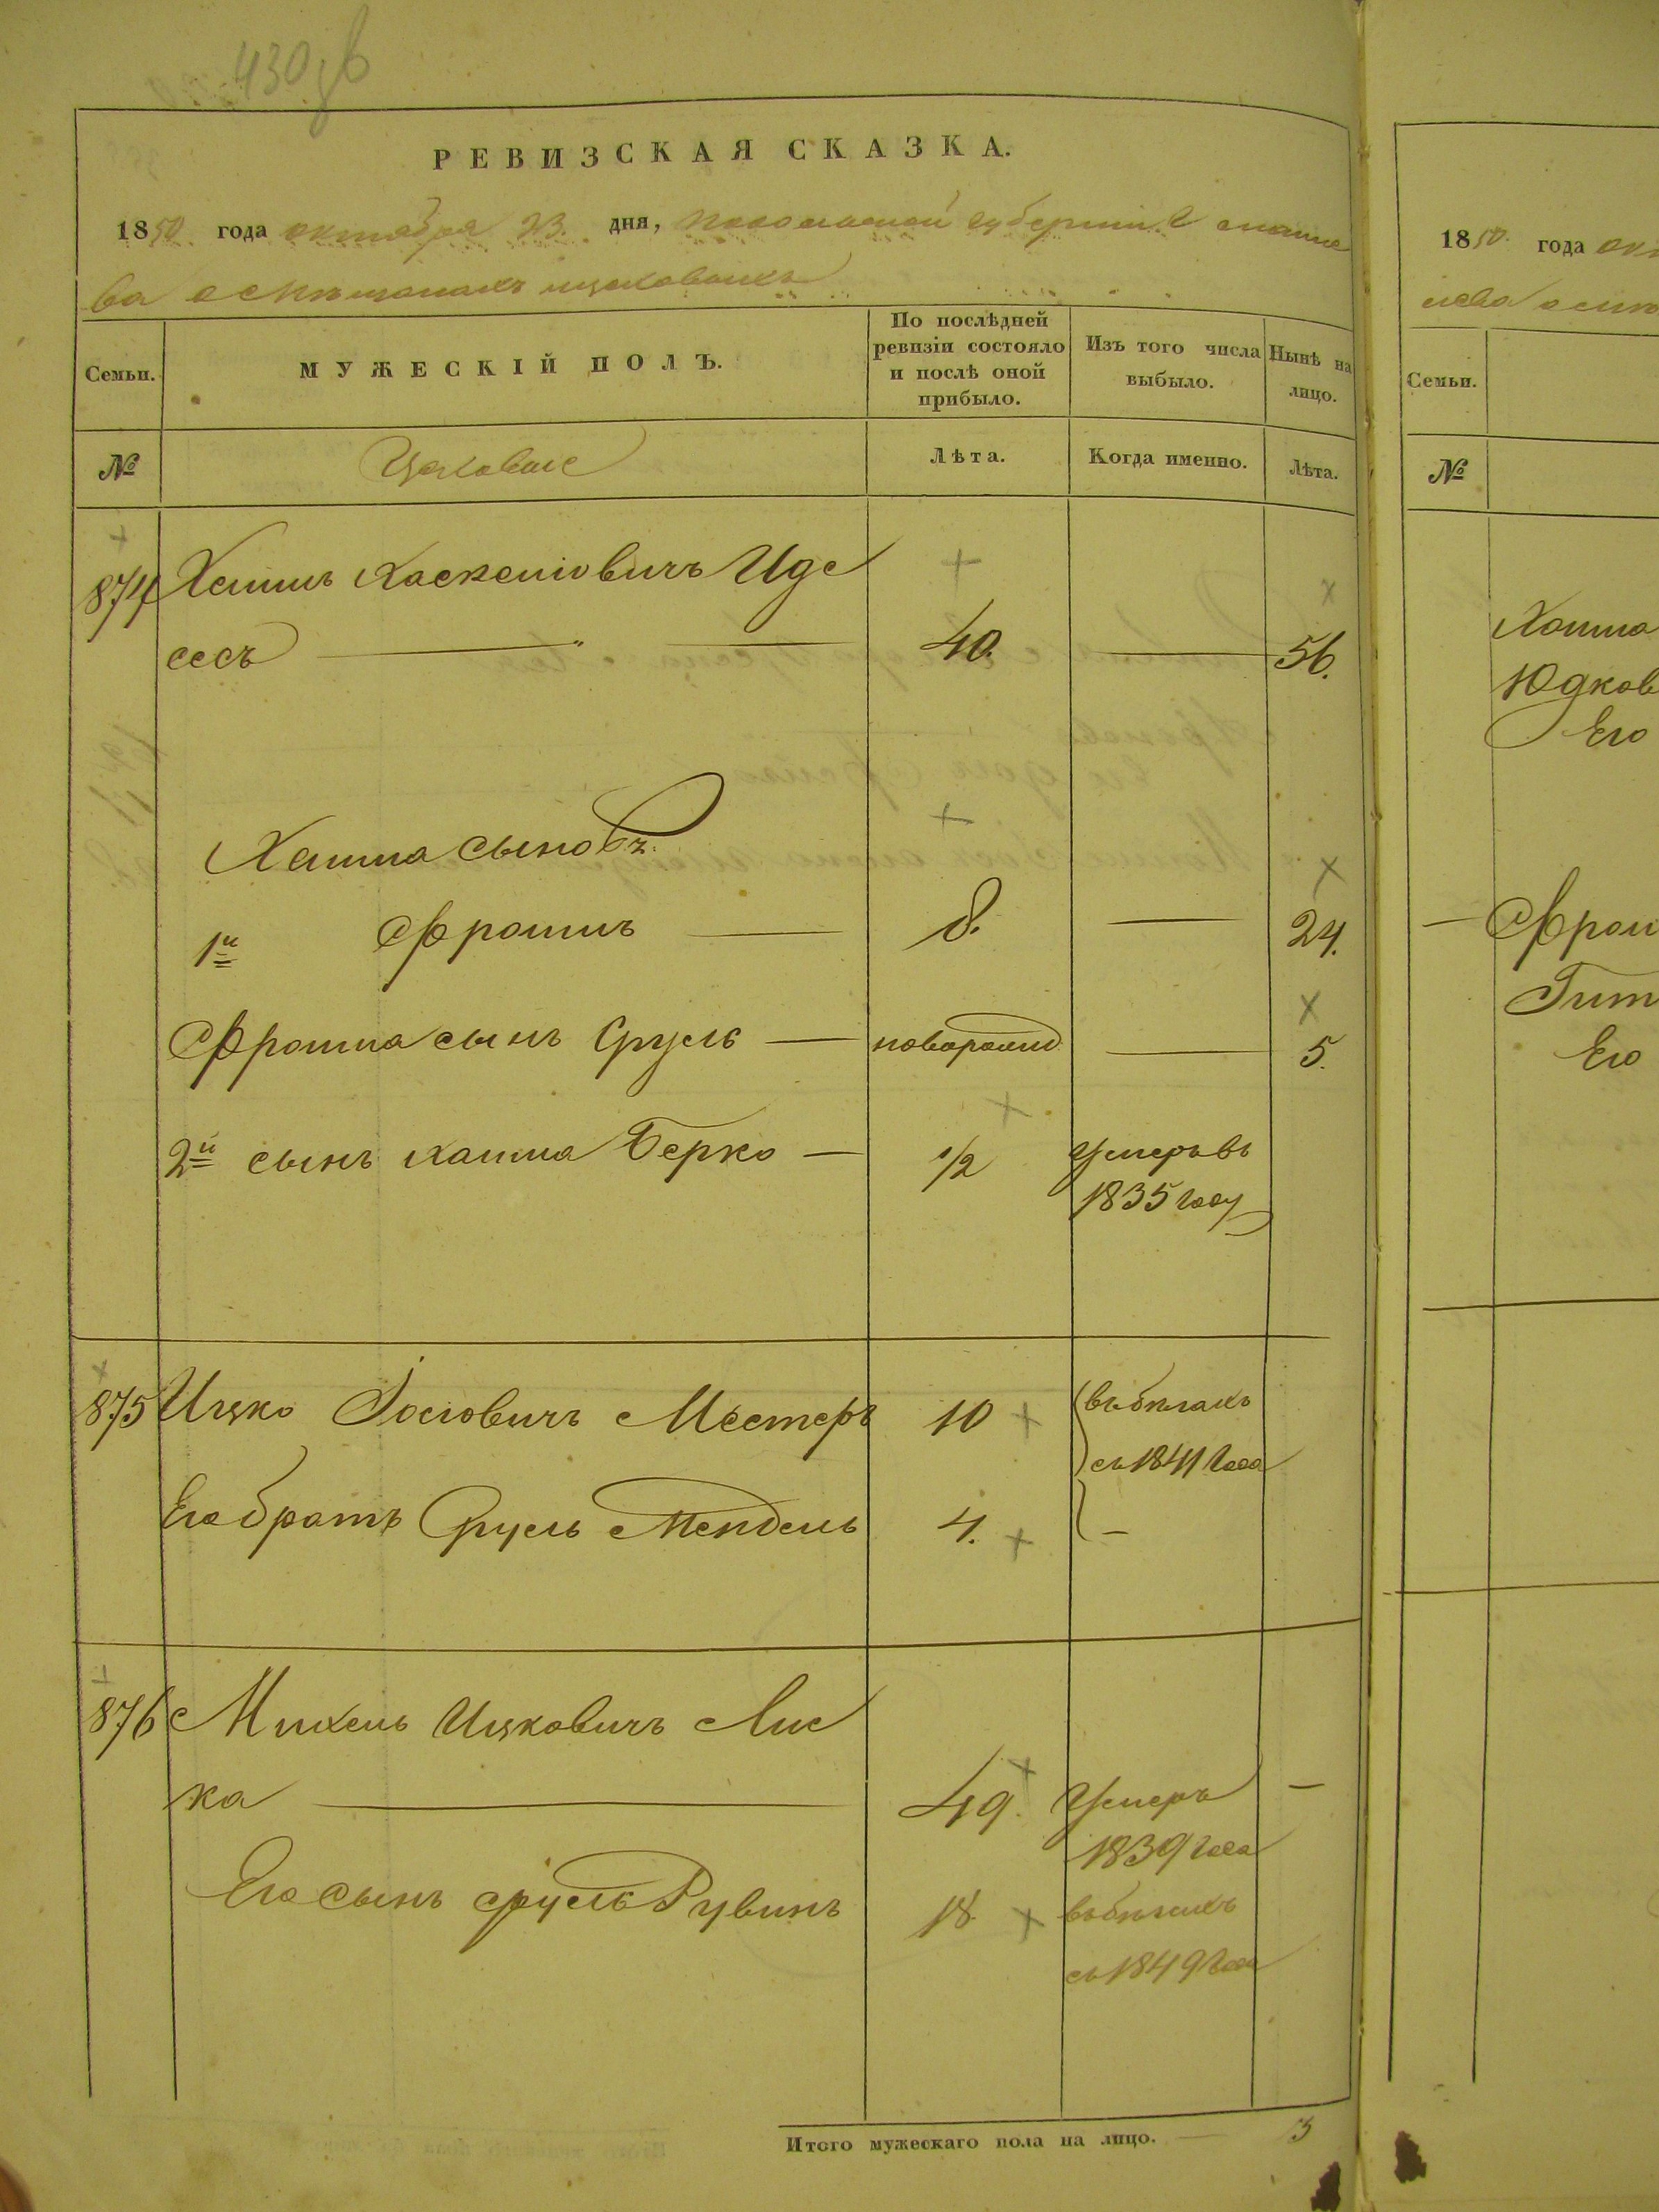 430
РЕВИЗСКАЯ СКАЗКА.
1850 года октября 23. дня, Подольской губернии
о мѣщанахъ цеховыхъ
Семьи. МУЖЕСКІЙ ПОЛЪ. По послѣдней ревизіи состояло и послѣ оной прибыло. Изъ того числа выбыло. Нынѣ на лицо.
№ Цеховые Лѣта. Когда именно. Лѣта.
874 Хаимъ Хаскелiовичъ Иде
сесъ 40. 56.
Хаима сыновъя
1й Фроимъ 8. 24.
Фроима сынъ Сруль новорожд 5.
2й сынъ Хаима Берко 1/2 Умеръ въ
1835 году
875 Ицко Іосiовичъ Местеръ 10 въ бѣгахъ
съ 1841 года
Его братъ Сруль Мендель 4. —
876 Михель Ицковичъ Лис
ка 49. Умеръ —
1839 года
Его сынъ Сруль Рувинъ 18. въ бѣгахъ
съ 1849 года
Итого мужескаго пола на лицо. 3
1850 года окт
Семьи.
№
Хаима
Юдков
Его
Фрои
Гит
Его